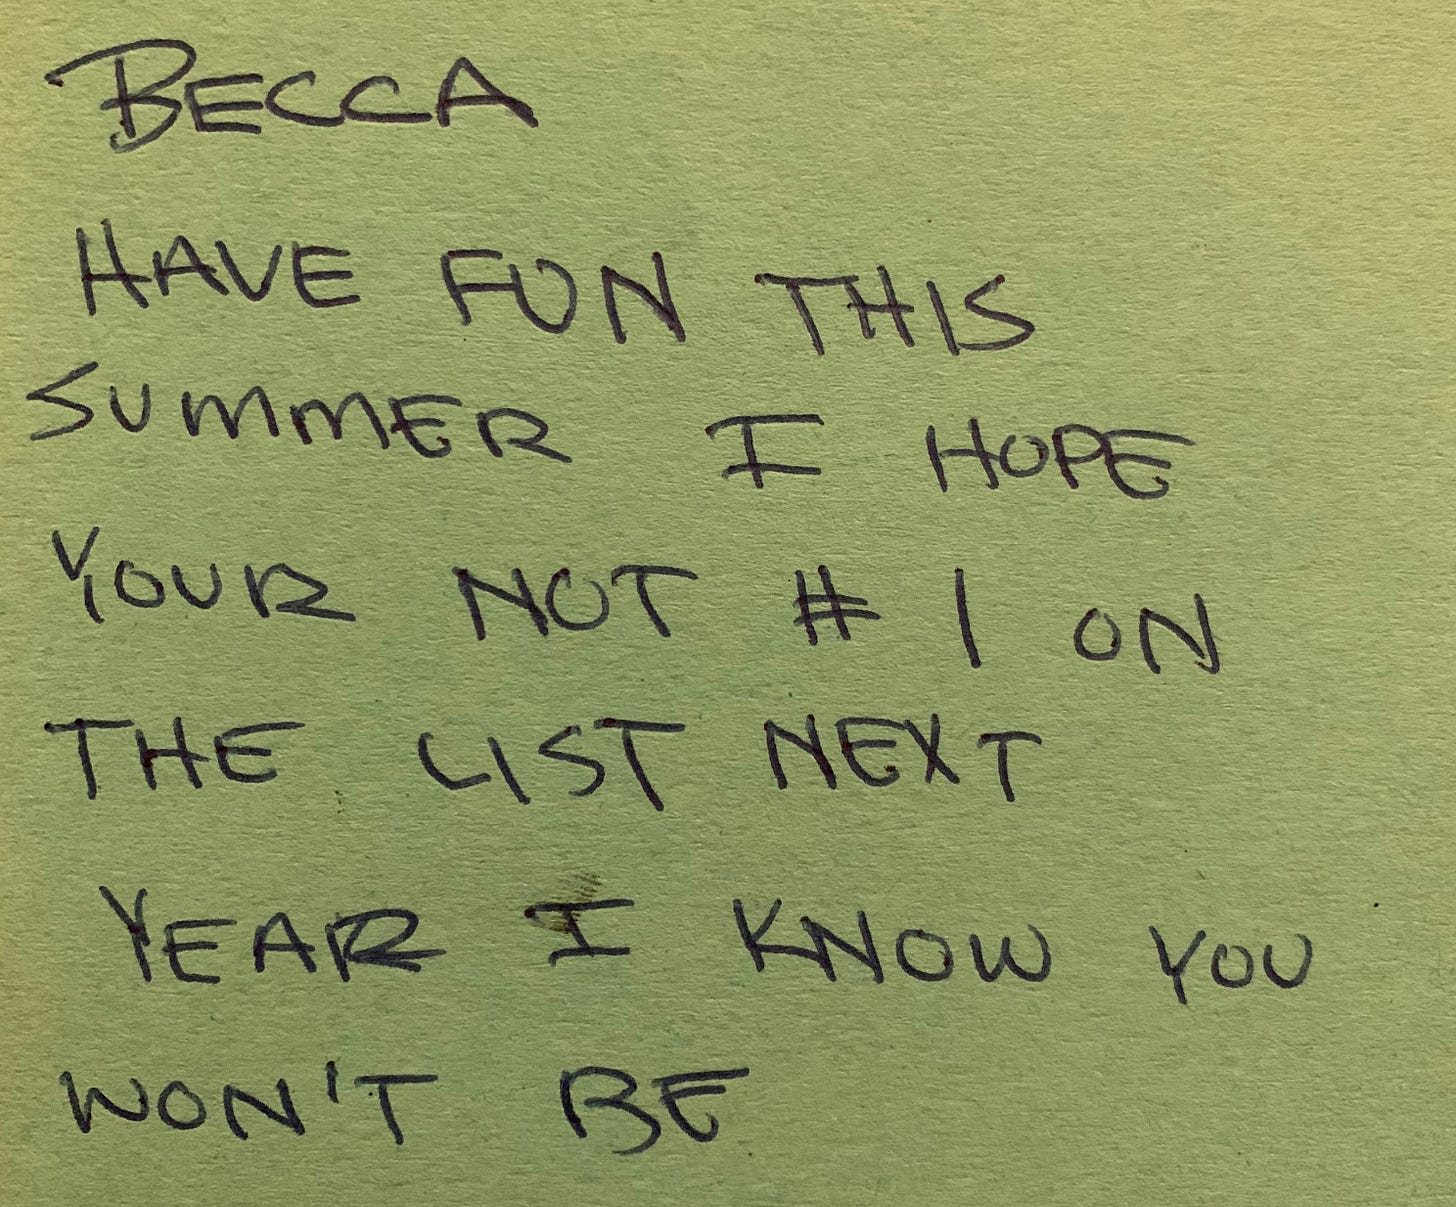 BECCA
HAVE FUN THIS
SUMMER I HOPE
YOUR NOT # 1 ON
THE LIST NEXT
YEAR I KNOW YOU
WON'T BE